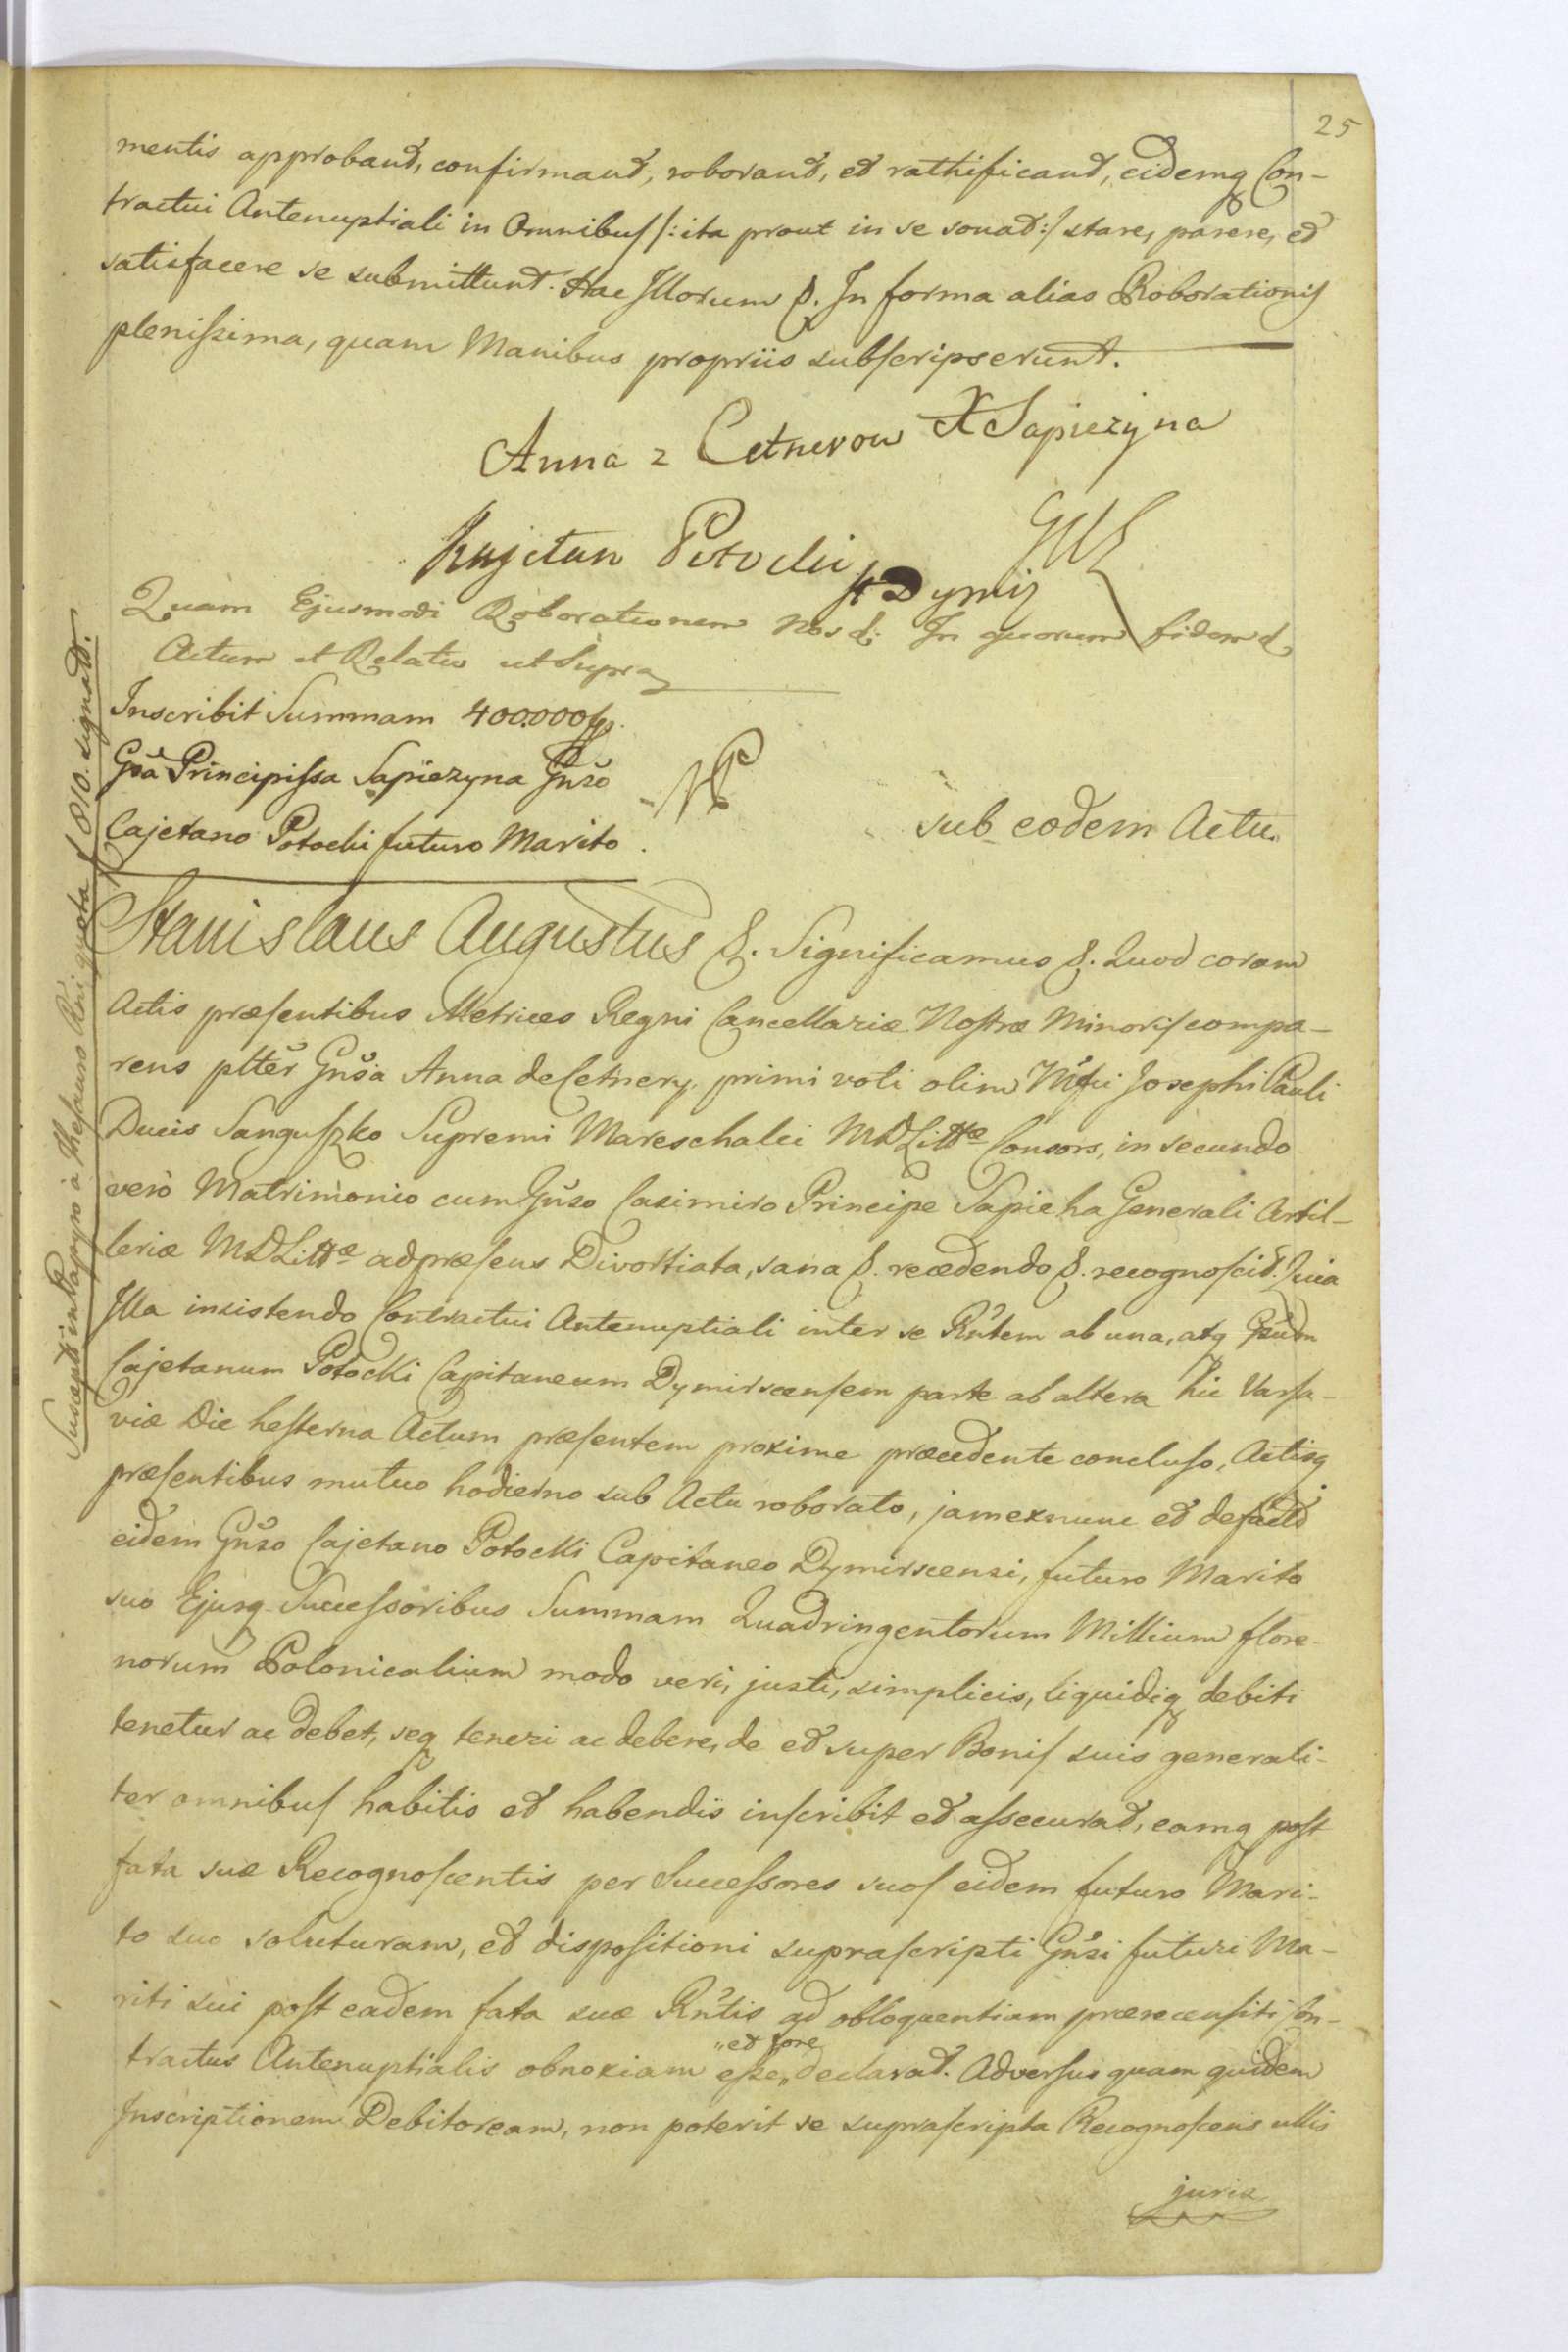 25
mentis approband, confirmand, roborand, et rathificand, eidemq Con-
tractui Antenuptiali in Omnibus /: ita prout in se sonat :/ stare, parere, et
satisfacere se submittunt. Hac Illorum &. In forma alias Roborationis
plenissima, quam Manibus propriis subscripserunt.
Anna z Cetnerow X Sapiezyna
Kajetan Potocki
St Dymir
Quam Ejusmodi Roborationem Nos &. In quorum fidem &
Actum et Relatio ut Supra
Inscribit Summam 400.000 fp.
Gsa Principissa Sapiezyna Gnso
Cajetano Potocki futuro Marito.
sub eodem Actu.
Stanislaus Augustus &. Significamus &. Quod coram
Actis præsentibus Metrices Regni Cancellariæ Nostræ Minoris compa-
rens pltter Gnsa Anna de Cetnery, primi voti olim Josephi Pauli
Ducis Sanguszko Supremi Mareschalci MDLittæ Consors, in secundo
verò Matrimonio cum Gnso Casimiro Principe Sapieha Generali Artil-
leriæ MDLittæ ad præsens Divortiata, sana &. recedendo &. recognoscit. Quia
Illa insistendo Contractui Antenuptiali inter se Rntem ab una, atq Gsum
Cajetanum Potocki Capitaneum Dymirscensem parte ab altera hic Varsa-
viæ Die hesterna Actum præsentem proxime præcedente concluso, Actisq
præsentibus mutuo hodierno sub Actu roborato, jam ex nunc et de facto
eidem Gnso Cajetano Potocki Capitaneo Dymirscensi, futuro Marito
suo Ejusq Successoribus Summam Quadringentorum Millium flore-
norum Polonicalium modo veri, justi, simplicis, liquidiq debiti
tenetur ac debet, seq teneri ac debere, de et super Bonis suis generali-
ter omnibus habitis et habendis inscribit et assecurat, eamq post
fata suæ Recognoscentis per Successores suos eidem futuro Mari-
to suo soluturam, et dispositioni suprascripti Gnsi futuri Ma-
riti sui post eadem fata suæ Rntis ad obloquentiam prærecensiti Con-
tractus Antenuptialis obnoxiam esse „et fore„ declarat. Adversus quam quidem
Inscriptionem Debitoream, non poterit se suprascripta Recognoscens ullis
juris
Suscepti in Papyro à Thesauro Rni quota 1810. signatt.